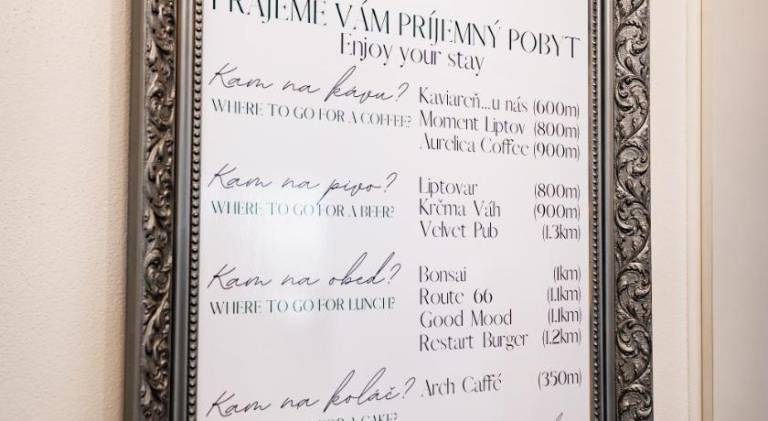 PRAJEME VÁM PRÍJEMNÝ POBYT
Enjoy your stay
Kam na kávu?
WHERE TO GO FOR A COFFEE?
Kaviareň...u nás (600m)
Moment Liptov (800m)
Aurelica Coffee (900m)
Kam na pivo?
WHERE TO GO FOR A BEER?
Liptovar (800m)
Krčma Váh (900m)
Velvet Pub (1.3km)
Kam na obed?
WHERE TO GO FOR LUNCH?
Bonsai (1km)
Route 66 (1.1km)
Good Mood (1.1km)
Restart Burger (1.2km)
Kam na koláč?
FOR A CAKE?
Arch Caffé (350m)